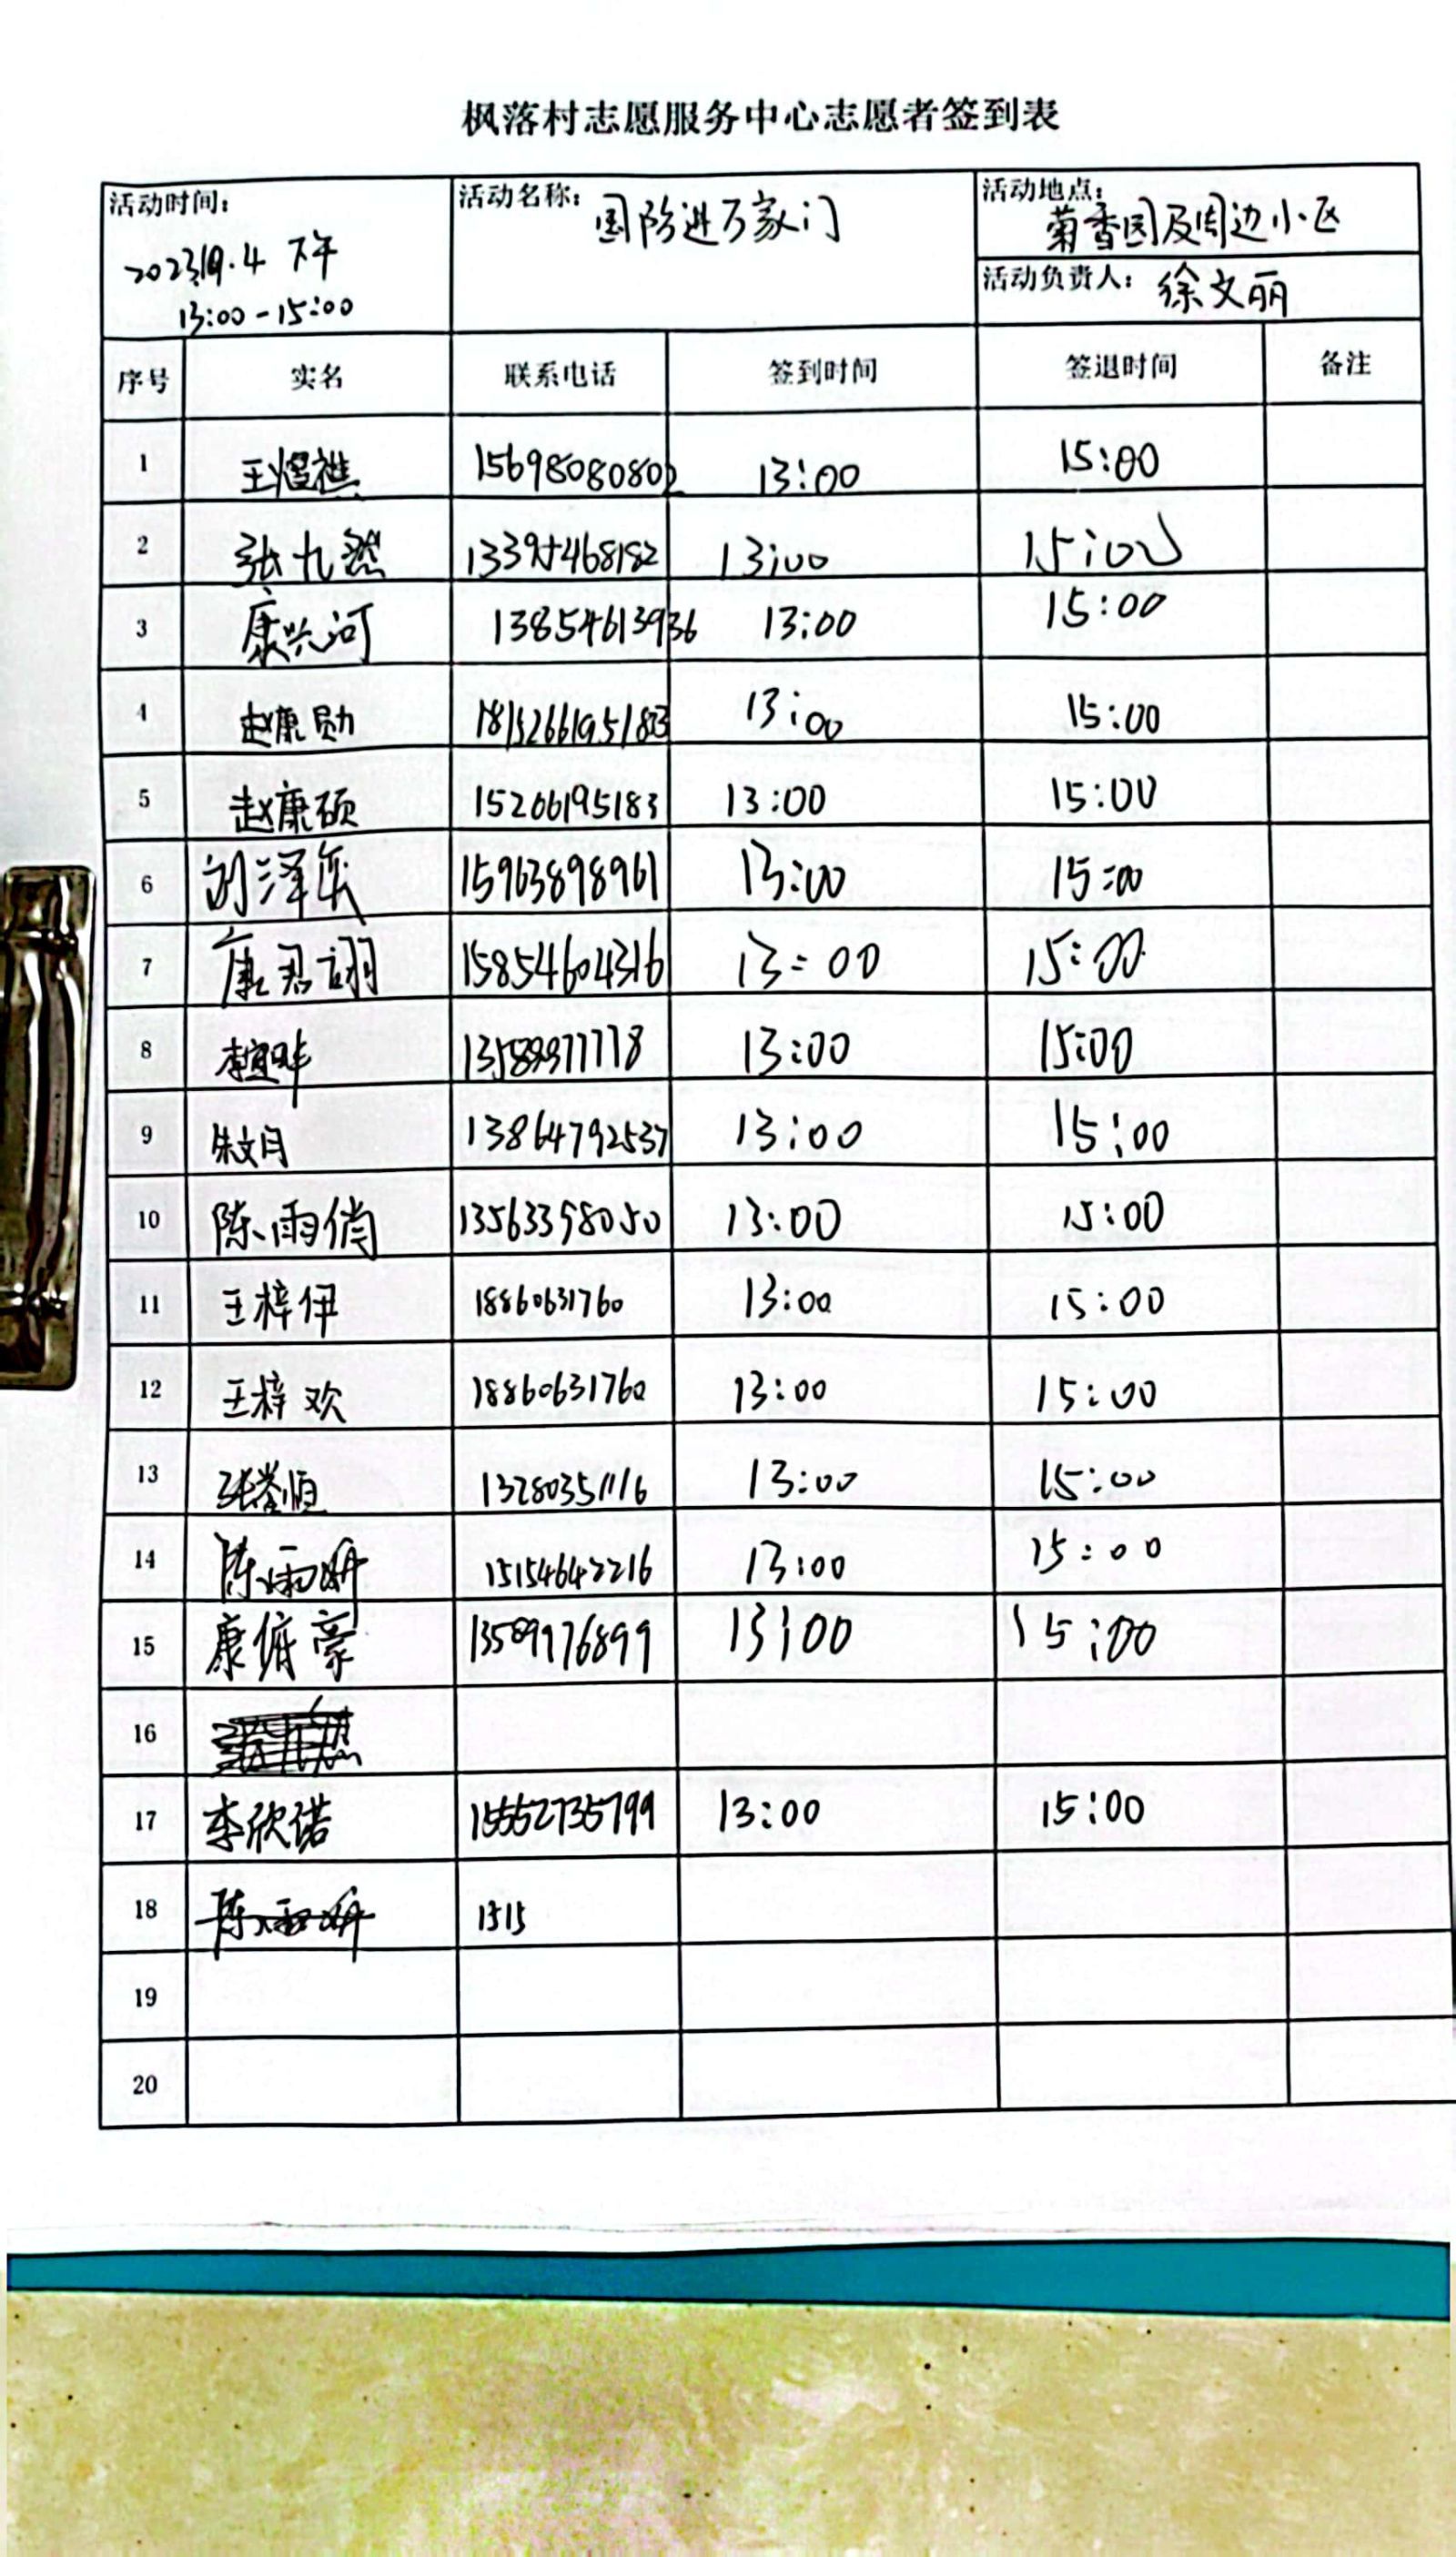 枫落村志愿服务中心志愿者签到表
活动时间： 活动名称：国防进万家门 活动地点：菊香园及周边小区
下午 活动负责人：徐文丽
13:00-15:00
序号 实名 联系电话 签到时间 签退时间 备注
1 王煜樵 15698080802 13:00 15:00
2 张九然 13:00 15:00
3 康兴河 13854613936 13:00 15:00
4 赵康勋 13:00 15:00
5 赵康硕 15206195183 13:00 15:00
6 刘泽乐 15963898961 13:00 15:00
7 康君翊 15854604316 13:00 15:00
8 13:00 15:00
9 朱文月 13864792537 13:00 15:00
10 陈雨俏 13563398050 13:00 15:00
11 王梓伊 18860631760 13:00 15:00
12 王梓欢 18860631760 13:00 15:00
13 13280351116 13:00 15:00
14 陈雨妍 15154642216 13:00 15:00
15 康倩豪 13589976899 13:00 15:00
16
17 李欣诺 15552735799 13:00 15:00
18 陈雨妍 1515
19
20